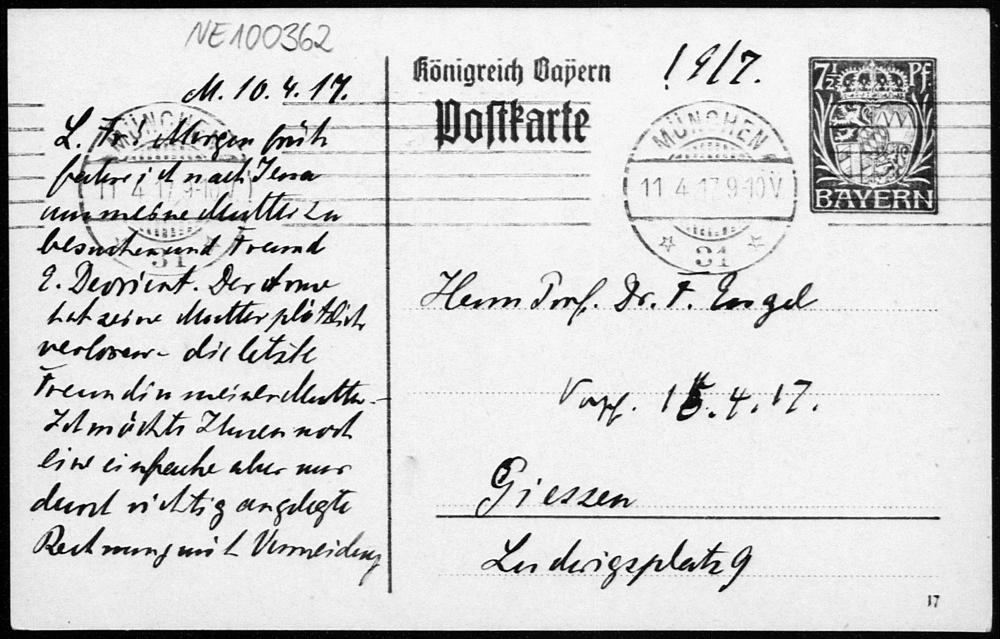 NE100362
M. 10. 4. 17.
L. Fr. Morgen früh
fahre ich nach Jena
um meine Mutter zu
besuchen und Freund
E. Devrient. Der Arme
hat seine Mutter plötzlich
verloren - die letzte
Freundin meiner Mutter.
Ich möchte Ihnen noch
eine einfache aber nur
durch richtig angelegte
Rechnung mit Vermeidung
Königreich Bayern
Postkarte
1917.
7½ Pf
BAYERN
MÜNCHEN
11 4.17.9-10V.
31
MÜNCHEN
11 4.17.9-10V.
31
Herrn Prof. Dr. F. Engel
15.4.17.
Giessen
Ludwigsplatz 9
17